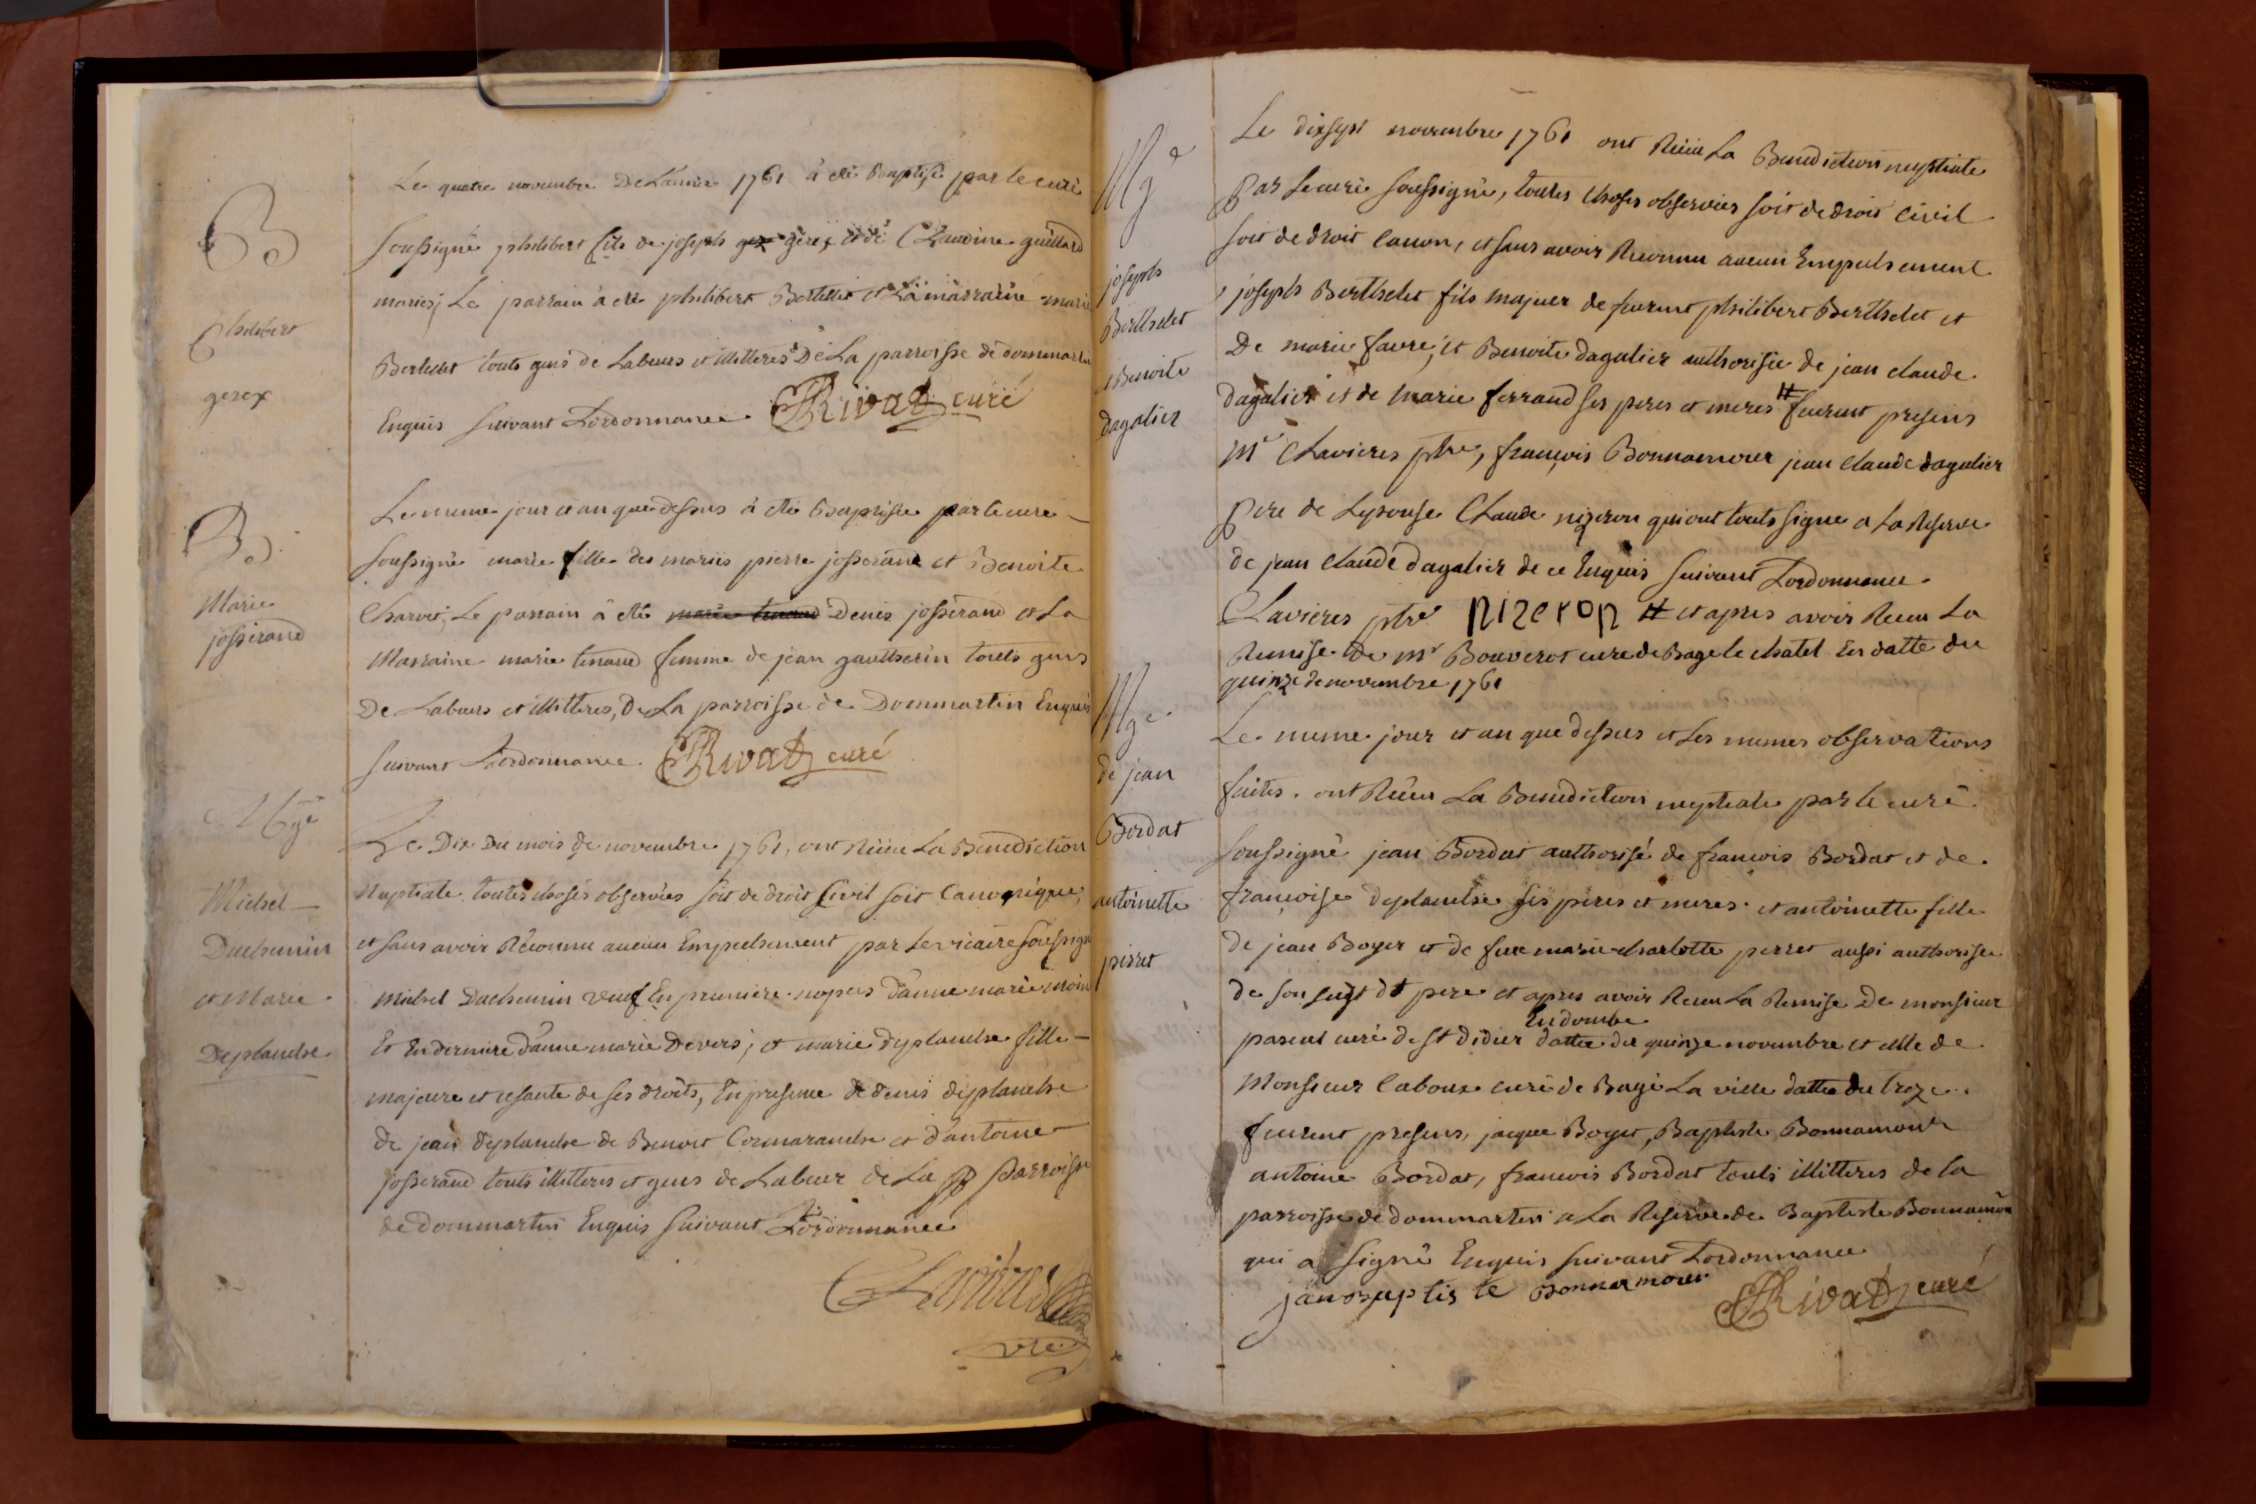 B
philibert
gerex
Le quatre novembre De L'année 1761 à été Baptisé par le curé
soussigné philibert fils de joseph gerex et de Claudine guillard
mariés; Le parrain à été philibert Berthelet et La marraine marie
Berthelet touts gens de Labeurs et illitteres De La parroisse de dommartin
Enquis suivant L'ordonnance. Rivat curé
B
Marie
josserand
Le meme jour et an que dessus à été Baptisée par le curé
soussigné marie fille des mariés pierre josserand et Benoite
Charvet; Le parrain à été Denis josserand et La
Marraine marie tenand femme de jean gautherin touts gens
De Labeurs et illitteres, De La parroisse de Dommartin Enquis
suivant L'ordonnance. Rivat curé
Mge
Michel
Duchemin
et Marie
Deplanche
Le Dix Du mois de novembre 1761, ont Réçeu La Benediction
Nuptiale toutes choses observées soit de droit Civil soit Canonique,
et sans avoir Réconnu aucun Empechement par Le vicaire soussigné
michel Duchemin veuf En premiere nopces d'anne marie moin
Et En derniere d'anne marie Devers; et marie deplanche fille
majeure et usante de ses droits, En presence de denis deplanche
de jean deplanche de Benoit Cormaranche et d'antoine
josserand touts illitteres et gens de Labeur de La parroisse
de dommartin Enquis suivant L'ordonnance
Clavières
vre
Mge
joseph
Berthelet
Benoite
dagalier
Le dixsept novembre 1761 ont Réçeu La Benediction nuptiale
Par Le curé soussigné, toutes choses observées soit de droit Civil
soit de droit Canon, et sans avoir Reconnu aucun Empechement
joseph Berthelet fils majeur de feurent philibert Berthelet et
De marie favre, et Benoite dagalier authorisée de jean claude
dagalier et de marie ferrand ses peres et meres # feurent presens
Mr Clavieres ptre, françois Bonnamour jean claude dagalier
Pere de L'epouse Claude nizeron qui ont touts signé a La Reserve
de jean claude dagalier de ce Enquis suivant L'ordonnance.
Clavieres ptre nizeron # et apres avoir Receu La
Remise de Mr Bouverot curé de Bagé le chatel En datte du
quinze de novembre 1761
Mge
de jean
Bordat
antoinette
perret
Le meme jour et an que dessus et Les memes observations
faites. ont Réçeu La Benediction nuptiale par le curé
soussigné jean Bordat authorisé de françois Bordat et de
françoise deplanche ses peres et meres. et antoinette fille
de jean Boyer et de feue marie charlotte perret aussi authorisée
de son sudt pere et apres avoir Receu La Remise De monsieur
En dombe
pascal curé de St Didier datteé du quinze novembre et celle de
Monsieur Caboux curé de Bagé La ville datteé du treze.
feurent presens, jacque Boyer, Baptiste Bonnamour
antoine Bordat, françois Bordat touts illitteres de la
parroisse de dommartin a La Reserve de Baptiste Bonnamour
qui a signé Enquis suivant L'ordonnance
jan baptis te Bonnamour Rivat curé